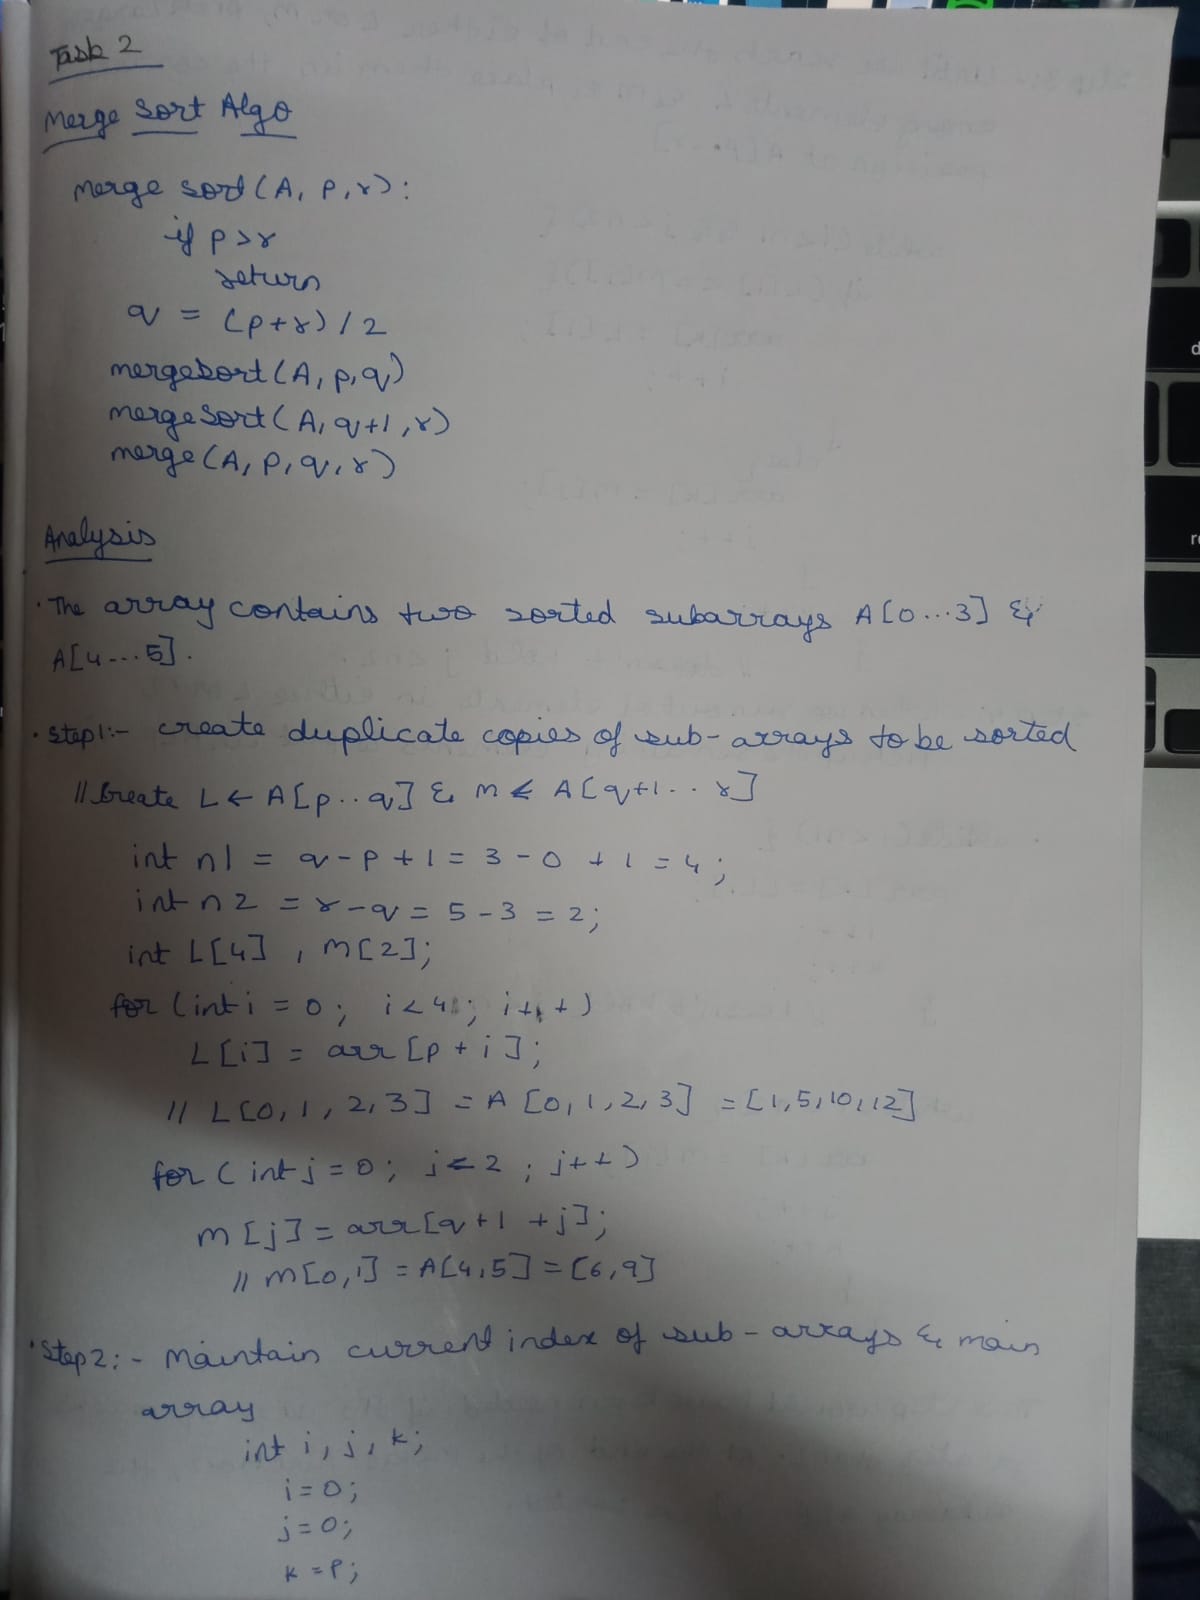 Task 2
Merge Sort Algo
Merge sort (A, P, r):
if p > r
return
q = (p+r) / 2
mergeSort (A, p, q)
mergeSort (A, q+1, r)
merge (A, P, q, r)
Analysis
• The array contains two sorted subarrays A[0...3] &
A[4...5].
• Step1:- create duplicate copies of sub-arrays to be sorted
// Create L ← A[p..q] & M ← A[q+1..r]
int n1 = q - p + 1 = 3 - 0 + 1 = 4;
int n2 = r - q = 5 - 3 = 2;
int L[4], M[2];
for (int i = 0; i < 4; i++)
L[i] = arr [p + i];
// L[0, 1, 2, 3] = A [0, 1, 2, 3] = [1, 5, 10, 12]
for (int j = 0; j < 2; j++)
M[j] = arr[q+1 +j];
// M[0,1] = A[4,5] = [6, 9]
• Step 2:- Maintain current index of sub-arrays & main
array
int i, j, k;
i = 0;
j = 0;
k = P;